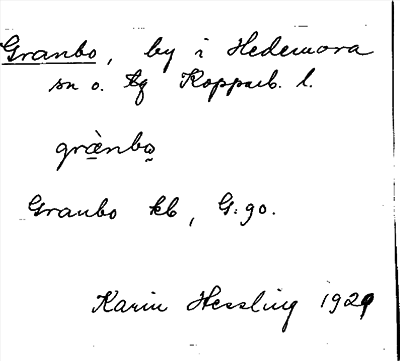 Granbo, by i Hedemora
sn o. tg Kopparb. l.
grànbo
Granbo kb, G:go.
Karin Hessling 1929